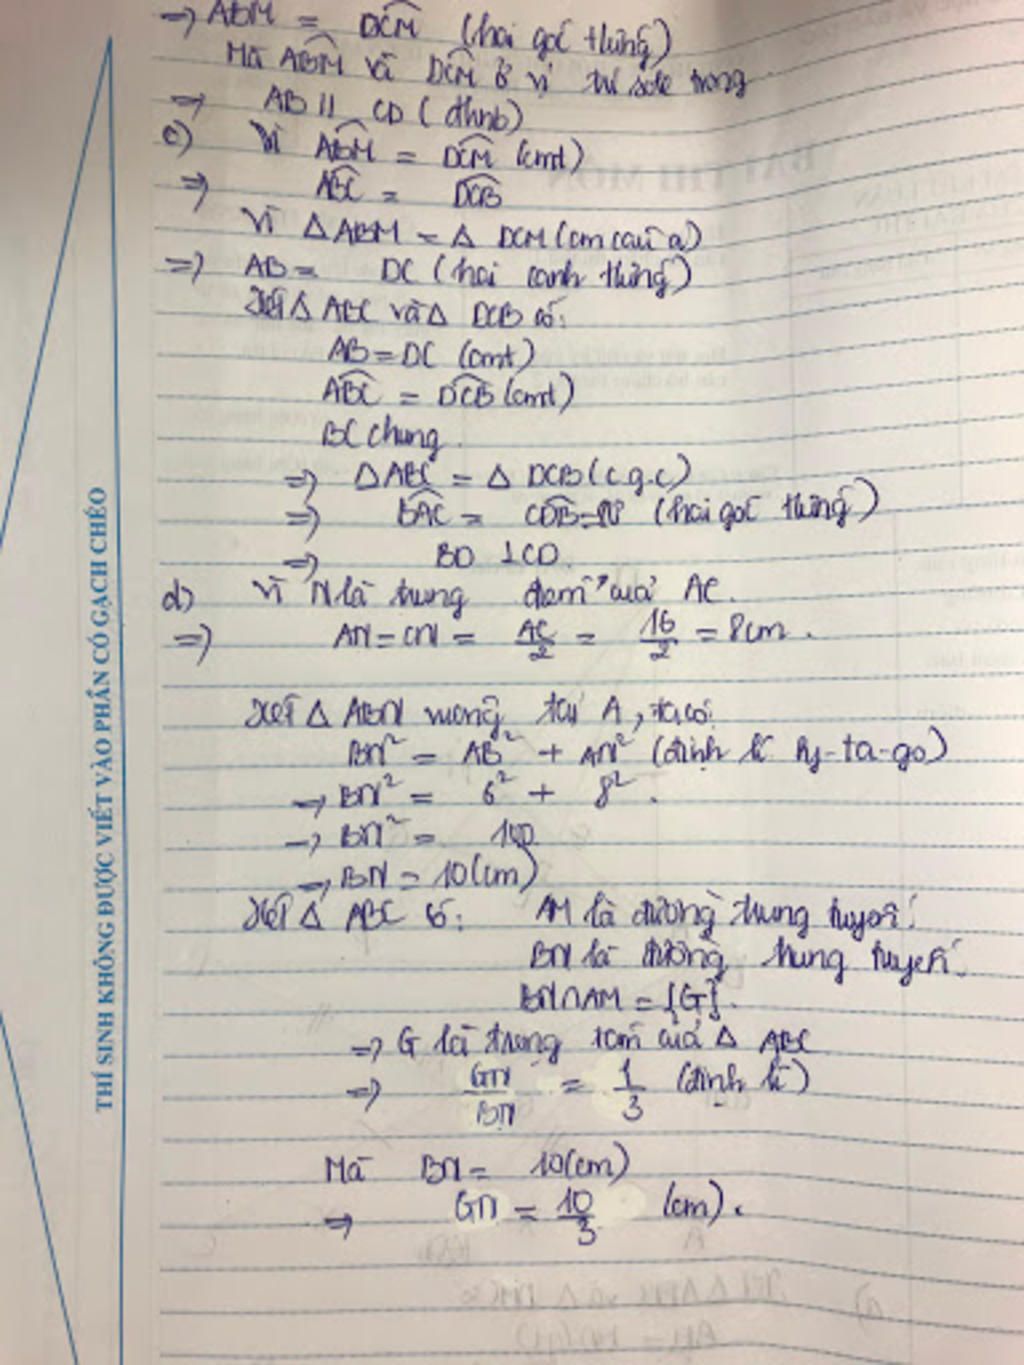 => ABM = DCM (hai góc tương ứng)
Mà ABM và DCM ở vị trí sole trong
=> AB || CD (dhnb)
c) Vì ABM = DCM (cmt)
=> ABC = DCB
Vì Δ ABM = Δ DCM (cm câu a)
=> AB = DC (hai cạnh tương ứng)
Xét Δ ABC và Δ DCB có:
AB = DC (cmt)
ABC = DCB (cmt)
BC chung.
=> Δ ABC = Δ DCB (c.g.c)
=> BAC = CDB = 90° (hai góc tương ứng)
=> BD ⊥ CD.
d) Vì N là trung điểm của AC.
=> AN = CN = AC/2 = 16/2 = 8cm.
Xét Δ ABN vuông tại A, ta có:
BN² = AB² + AN² (định lí Py-ta-go)
→ BN² = 6² + 8².
→ BN² = 100
→ BN = 10(cm)
Xét Δ ABC có: AM là đường trung tuyến.
BN là đường trung tuyến.
BN∩AM = {G}.
=> G là trọng tâm của Δ ABC
=> GN/BN = 1/3 (định lí)
Mà BN = 10(cm)
=> GN = 10/3 (cm).
THÍ SINH KHÔNG ĐƯỢC VIẾT VÀO PHẦN CÓ GẠCH CHÉO